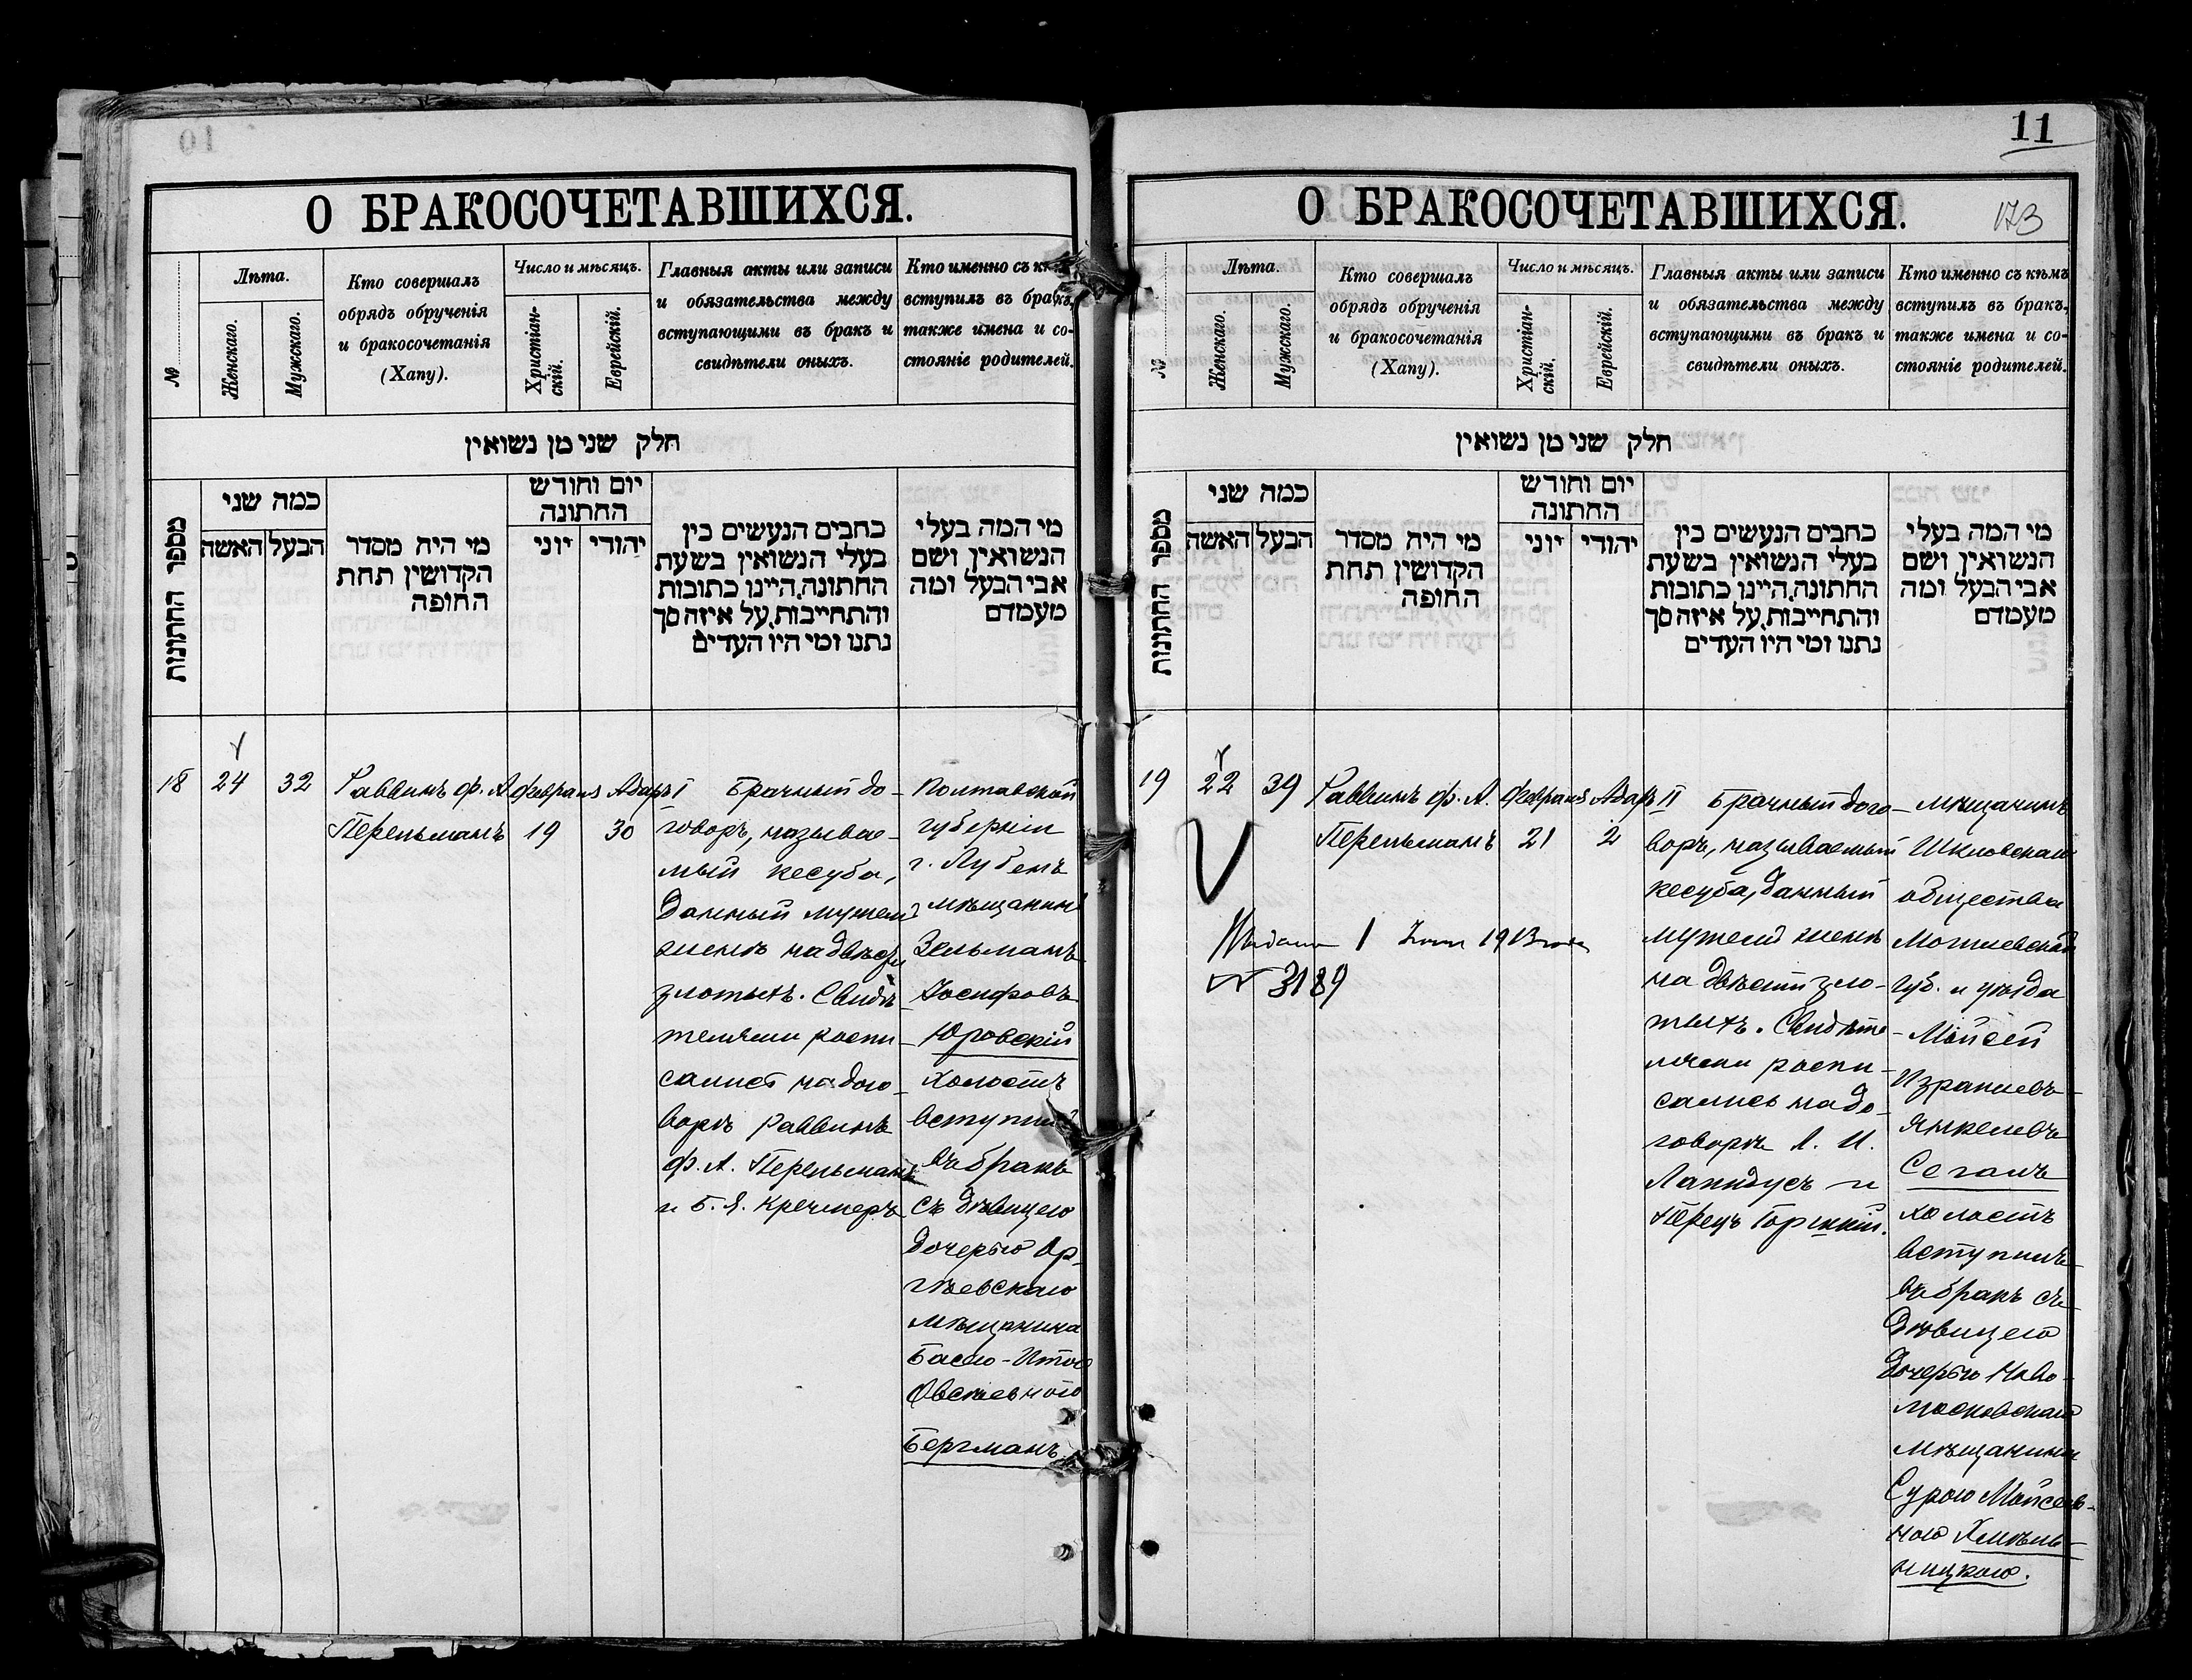 О БРАКОСОЧЕТАВШИХСЯ.
№
Лѣта.
Женскаго.
Мужскаго.
Кто совершалъ
обрядъ обрученія
и бракосочетанія
(Хапу).
Число и мѣсяцъ.
Христіан-
скій.
Еврейскій.
Главныя акты или записи
и обязательства между
вступающими въ бракъ и
свидѣтели оныхъ.
Кто именно съ кѣмъ
вступилъ въ бракъ,
также имена и со-
стояніе родителей.
חלק שני מן נשואין
מספר החתונות
כמה שני
האשה
הבעל
מי היה מסדר
הקדושין תחת
החופה
יום וחודש
החתונה
יוני
יהודי
כתבים הנעשים בין
בעלי הנשואין בשעת
החתונה, היינו כתובות
והתחייבות, על איזה סך
נתנו ומי היו העדים
מי המה בעלי
הנשואין ושם
אבי הבעל ומה
מעמדם
18
24
32
Раввинъ Ф. А.
Перельманъ
Февраля
19
Адаръ I
30
Брачный до-
говоръ, называе-
мый кесуба,
данный мужемъ
женѣ на двѣсти
злотыхъ. Свидѣ
телями роспи-
сались на дого-
ворѣ Раввинъ
Ф. А. Перельманъ
и Б. Я. Кречмеръ
Полтавской
губерніи
г. Лубенъ
мѣщанинъ
Зельманъ
Іосифовъ
Юровскій
холостъ
вступилъ
въ бракъ
съ дѣвицею
дочерью Ор-
гѣевскаго
мѣщанина
Басею-Итою
Овсѣевною
Бергманъ.
11
О БРАКОСОЧЕТАВШИХСЯ.
173
№
Лѣта.
Женскаго.
Мужскаго.
Кто совершалъ
обрядъ обрученія
и бракосочетанія
(Хапу).
Число и мѣсяцъ.
Христіан-
скій.
Еврейскій.
Главныя акты или записи
и обязательства между
вступающими въ бракъ и
свидѣтели оныхъ.
Кто именно съ кѣмъ
вступилъ въ бракъ,
также имена и со-
стояніе родителей.
חלק שני מן נשואין
מספר החתונות
כמה שני
האשה
הבעל
מי היה מסדר
הקדושין תחת
החופה
יום וחודש
החתונה
יוני
יהודי
כתבים הנעשים בין
בעלי הנשואין בשעת
החתונה, היינו כתובות
והתחייבות, על איזה סך
נתנו ומי היו העדים
מי המה בעלי
הנשואין ושם
אבי הבעל ומה
מעמדם
19
22
39
Раввинъ Ф. А.
Перельманъ
Февраля
21
Адаръ II
2
1 1913 года
№ 3189
Брачный дого-
воръ, называемый
кесуба, данный
мужемъ женѣ
на двѣсти зло-
тыхъ. Свидѣте-
лями роспи-
сались на до-
говорѣ А. И.
Лапидусъ и
Перецъ Горскій.
мѣщанинъ
Шкловскаго
общества
Могилевской
губ. и уѣзда
Мойсей
Израилевъ-
Янкелевъ
Сегалъ
холостъ
вступилъ
въ бракъ съ
дѣвицею
дочерью Ново-
московскаго
мѣщанина
Сурою Мойсеев-
ною Хмѣль-
ницкою.